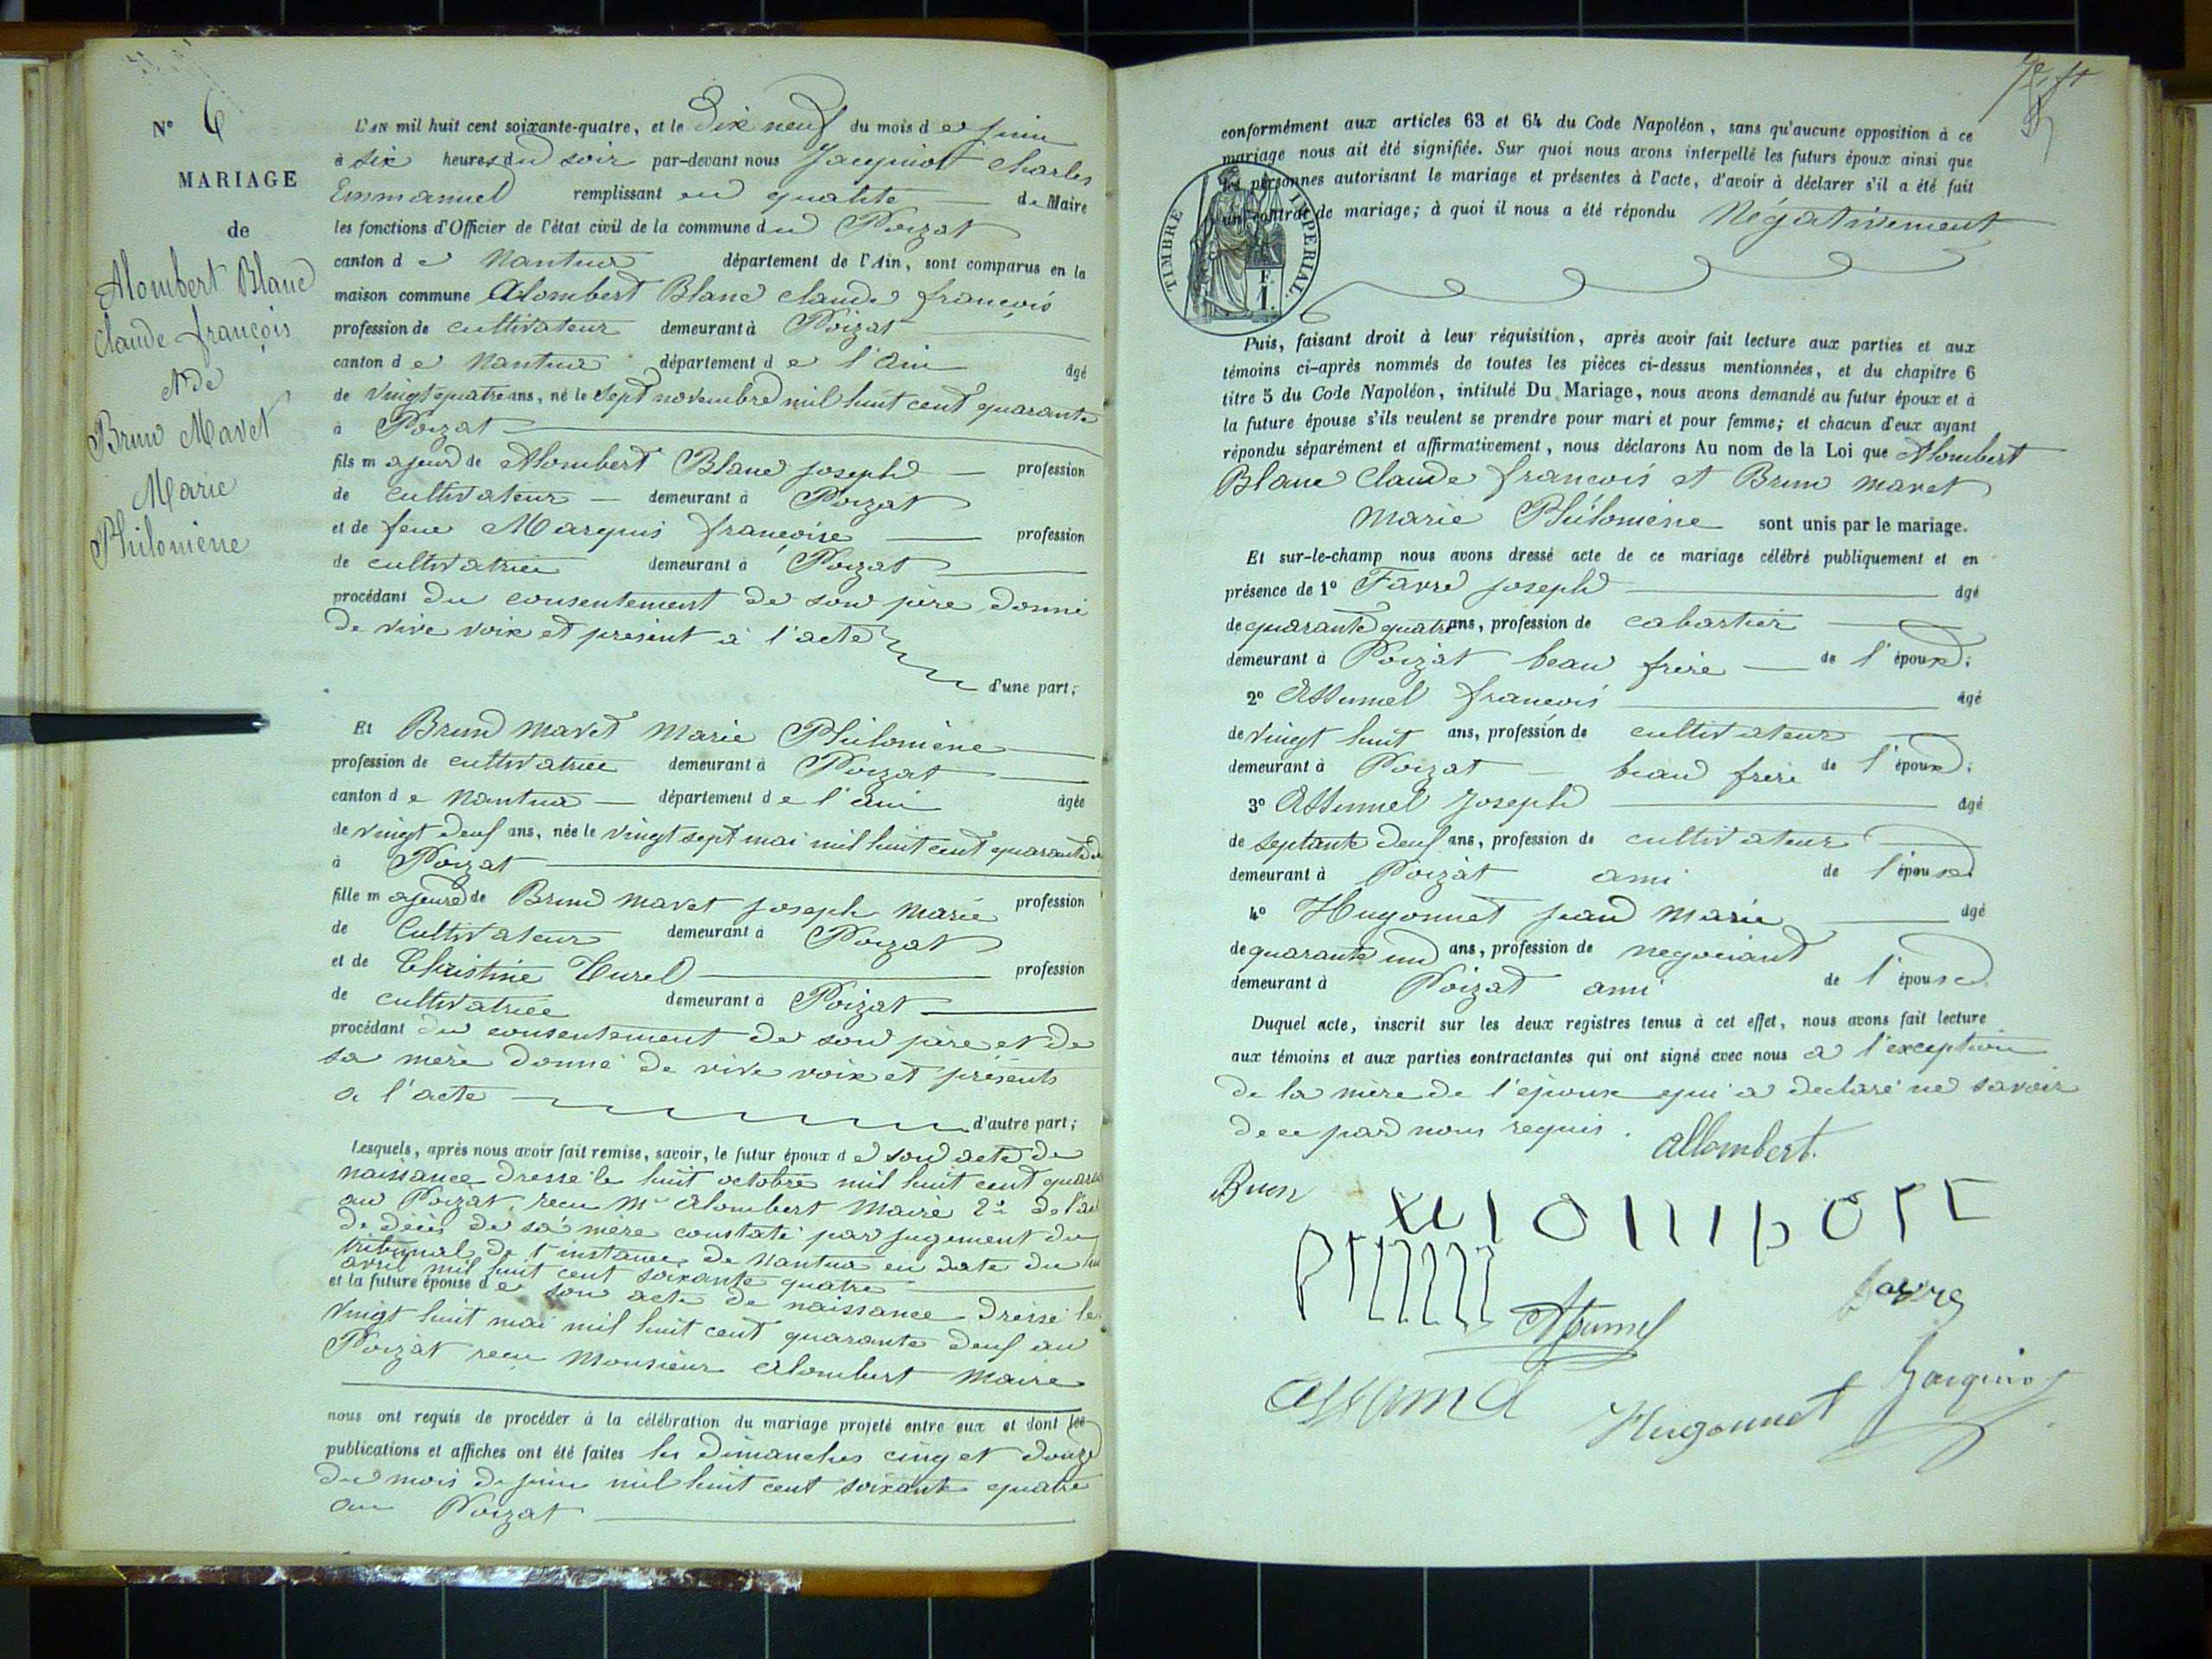 N° 6
MARIAGE
de
Alombert Blanc
Claude françois
Et de
Brun Mavet
Marie
Philomène
L'AN mil huit cent soixante-quatre, et le Dix neuf du mois de juin
à six heures du soir par-devant nous Jacquinot Charles
Emmanuel remplissant en qualité de Maire
les fonctions d'Officier de l'état civil de la commune du Poizat
canton de Nantua département de l'Ain, sont comparus en la
maison commune Alombert Blanc claude françois
profession de cultivateur demeurant à Poizat
canton de Nantua département de l'ain âgé
de vingt quatre ans, né le sept novembre mil huit cent quarante
à Poizat
fils majeur de Alombert Blanc joseph profession
de cultivateur demeurant à Poizat
et de feue Marquis françoise profession
de cultivatrice demeurant à Poizat
procédant du consentement de son père donné
de vive voix et présent à l'acte
d'une part;
Et Brun Mavet Marie Philomène
profession de cultivatrice demeurant à Poizat
canton de Nantua département de l'ain âgée
de vingt deux ans, née le vingt sept mai mil huit cent quarante
à Poizat
fille majeure de Brun Mavet joseph Marie profession
de Cultivateur demeurant à Poizat
et de Christine Turel profession
de cultivatrice demeurant à Poizat
procédant du consentement de son père et de
sa mère donné de vive voix et présents
a l'acte
d'autre part;
Lesquels, après nous avoir fait remise, savoir, le futur époux de son acte de
naissance dressé le huit octobre mil huit cent
au Poizat, reçu Mr Alombert Maire 2° de
de décès de sa mère constaté par jugement du
tribunal de 1re instance de Nantua en date du
avril mil huit cent soixante quatre
et la future épouse de son acte de naissance dressé le
vingt huit mai mil huit cent quarante deux au
Poizat reçu Monsieur Alombert Maire
nous ont requis de procéder à la célébration du mariage projeté entre eux et dont les
publications et affiches ont été faites les dimanches cinq et douze
du mois de juin mil huit cent soixante quatre
au Poizat
conformément aux articles 63 et 64 du Code Napoléon, sans qu'aucune opposition à ce
mariage nous ait été signifiée. Sur quoi nous avons interpellé les futurs époux ainsi que
les personnes autorisant le mariage et présentes à l'acte, d'avoir à déclarer s'il a été fait
un contrat de mariage; à quoi il nous a été répondu Négativement
TIMBRE IMPERIAL
F.
1.
Puis, faisant droit à leur réquisition, après avoir fait lecture aux parties et aux
témoins ci-après nommés de toutes les pièces ci-dessus mentionnées, et du chapitre 6
titre 5 du Code Napoléon, intitulé Du Mariage, nous avons demandé au futur époux et à
la future épouse s'ils veulent se prendre pour mari et pour femme; et chacun d'eux ayant
répondu séparément et affirmativement, nous déclarons Au nom de la Loi que Alombert
Blanc Claude françois et Brun Mavet
Marie Philomène sont unis par le mariage.
Et sur-le-champ nous avons dressé acte de ce mariage célébré publiquement et en
présence de 1° Favre joseph âgé
de quarante quatre ans, profession de cabartier
demeurant à Poizat beau frère de l'époux;
2° Assumel françois âgé
de vingt huit ans, profession de cultivateur
demeurant à Poizat beau frère de l'époux;
3° Assumel Joseph âgé
de septante deux ans, profession de cultivateur
demeurant à Poizat ami de l'époux
4° Hugonnet jean Marie âgé
de quarante un ans, profession de negociant
demeurant à Poizat ami de l'épouse
Duquel acte, inscrit sur les deux registres tenus à cet effet, nous avons fait lecture
aux témoins et aux parties contractantes qui ont signé avec nous a l'exception
de la mère de l'épouse qui a declaré ne savoir
de ce par nous requis.
allombert.
Brun
favre
Assumel
Hugonnet
Jacquinot